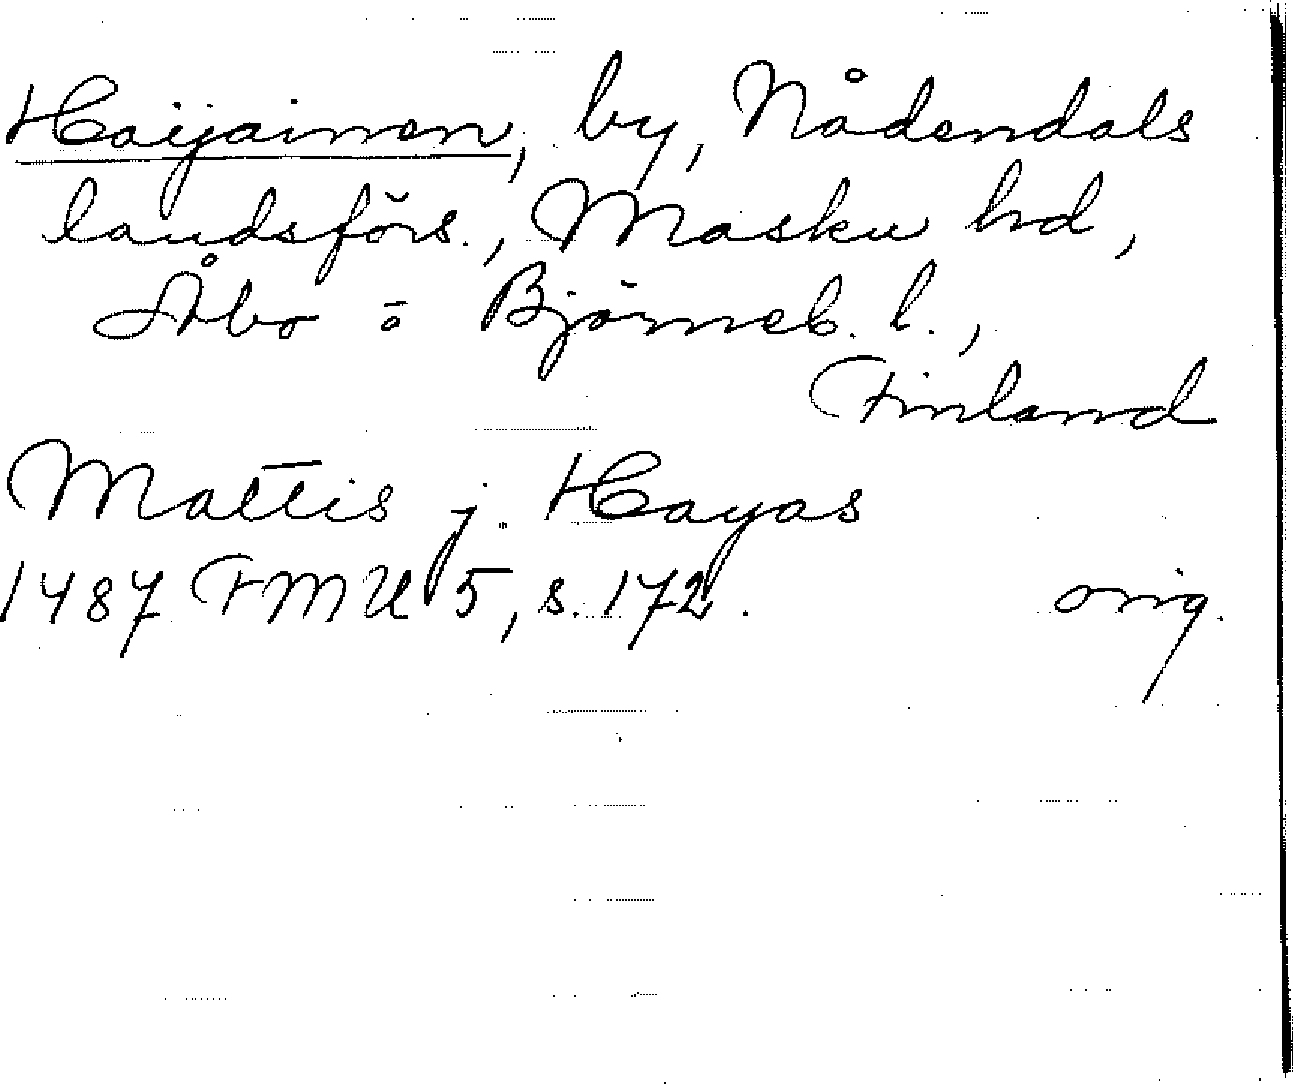 Haijainen, by, Nådendals
landsförs., Masku hd,
Åbo o Björneb. l.,
Finland
Mattis j. Hayas
1487 FMU 5, s. 172.
orig.